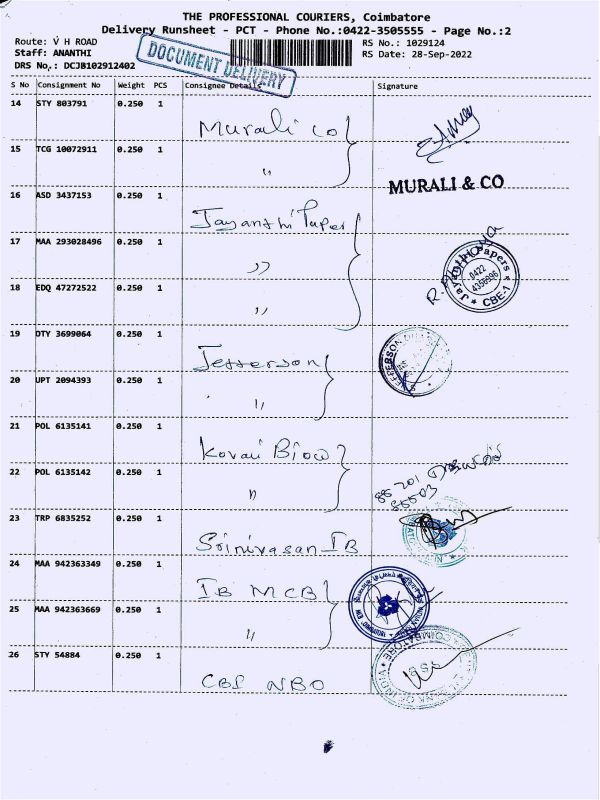 THE PROFESSIONAL COURIERS, Coimbatore
Delivery Runsheet - PCT - Phone No.:0422-3505555 - Page No.:2
Route: V H ROAD RS No.: 1029124
Staff: ANANTHI RS Date: 28-Sep-2022
DRS No.: DCJB102912402
DOCUMENT DELIVERY
S No Consignment No Weight PCS Consignee Details Signature
14 STY 803791 0.250 1 Murali co
15 TCG 10072911 0.250 1 "
MURALI & CO
16 ASD 3437153 0.250 1 Jayanthi Paper
17 MAA 293028496 0.250 1 "
Jayanthi Papers 0422 CBE-1
18 EDQ 47272522 0.250 1 "
19 DTY 3699064 0.250 1 Jefferson
JEFFERSON
20 UPT 2094393 0.250 1 "
21 POL 6135141 0.250 1 Kovai Biow
22 POL 6135142 0.250 1 "
23 TRP 6835252 0.250 1 Srinivasan IB
24 MAA 942363349 0.250 1 IB MCB
25 MAA 942363669 0.250 1 "
26 STY 54884 0.250 1 CBI NBO
COIMBATORE